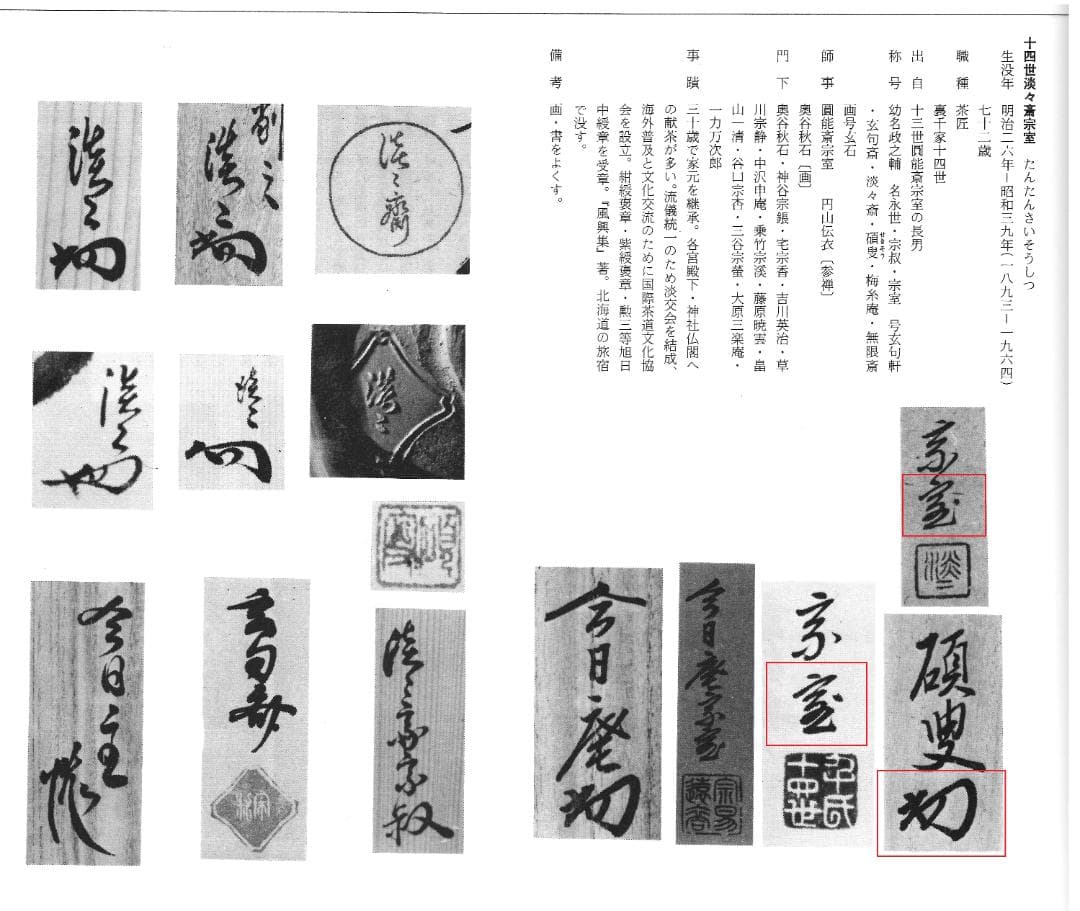 十四世淡々斎宗室　たんたんさいそうしつ
生没年　明治二六年―昭和三九年(一八九三―一九六四)
七十二歳
職種　茶匠
裏千家十四世
出自　十三世圓能斎宗室の長男
称号　幼名政之輔　名永世・宗叔・宗室　号玄句軒
・玄句斎・淡々斎・碩叟・梅糸庵・無限斎
せきそう
画号玄石
師事　圓能斎宗室　円山伝衣〔参禅〕
奥谷秋石〔画〕
門下　奥谷秋石・神谷宗𬋖・宅宗香・吉川英治・草
川宗静・中沢申庵・乗竹宗渓・藤原暁雲・畠
山一清・谷口宗杏・三谷宗螢・大原三楽庵・
一力万次郎
事蹟　三十歳で家元を継承。各宮殿下・神社仏閣へ
の献茶が多い。流儀統一のため淡交会を結成、
海外普及と文化交流のために国際茶道文化協
会を設立。紺綬褒章・紫綬褒章・勲三等旭日
中綬章を受章。『風興集』著。北海道の旅宿
で没す。
備考　画・書をよくす。
宗室
淡々
碩叟
宗室
千氏
十四世
今日庵宗室
宗易
遠裔
今日庵
淡々斎
淡々
碩叟
淡々斎宗叔
淡々
玄句斎
淡々
淡々
今日主